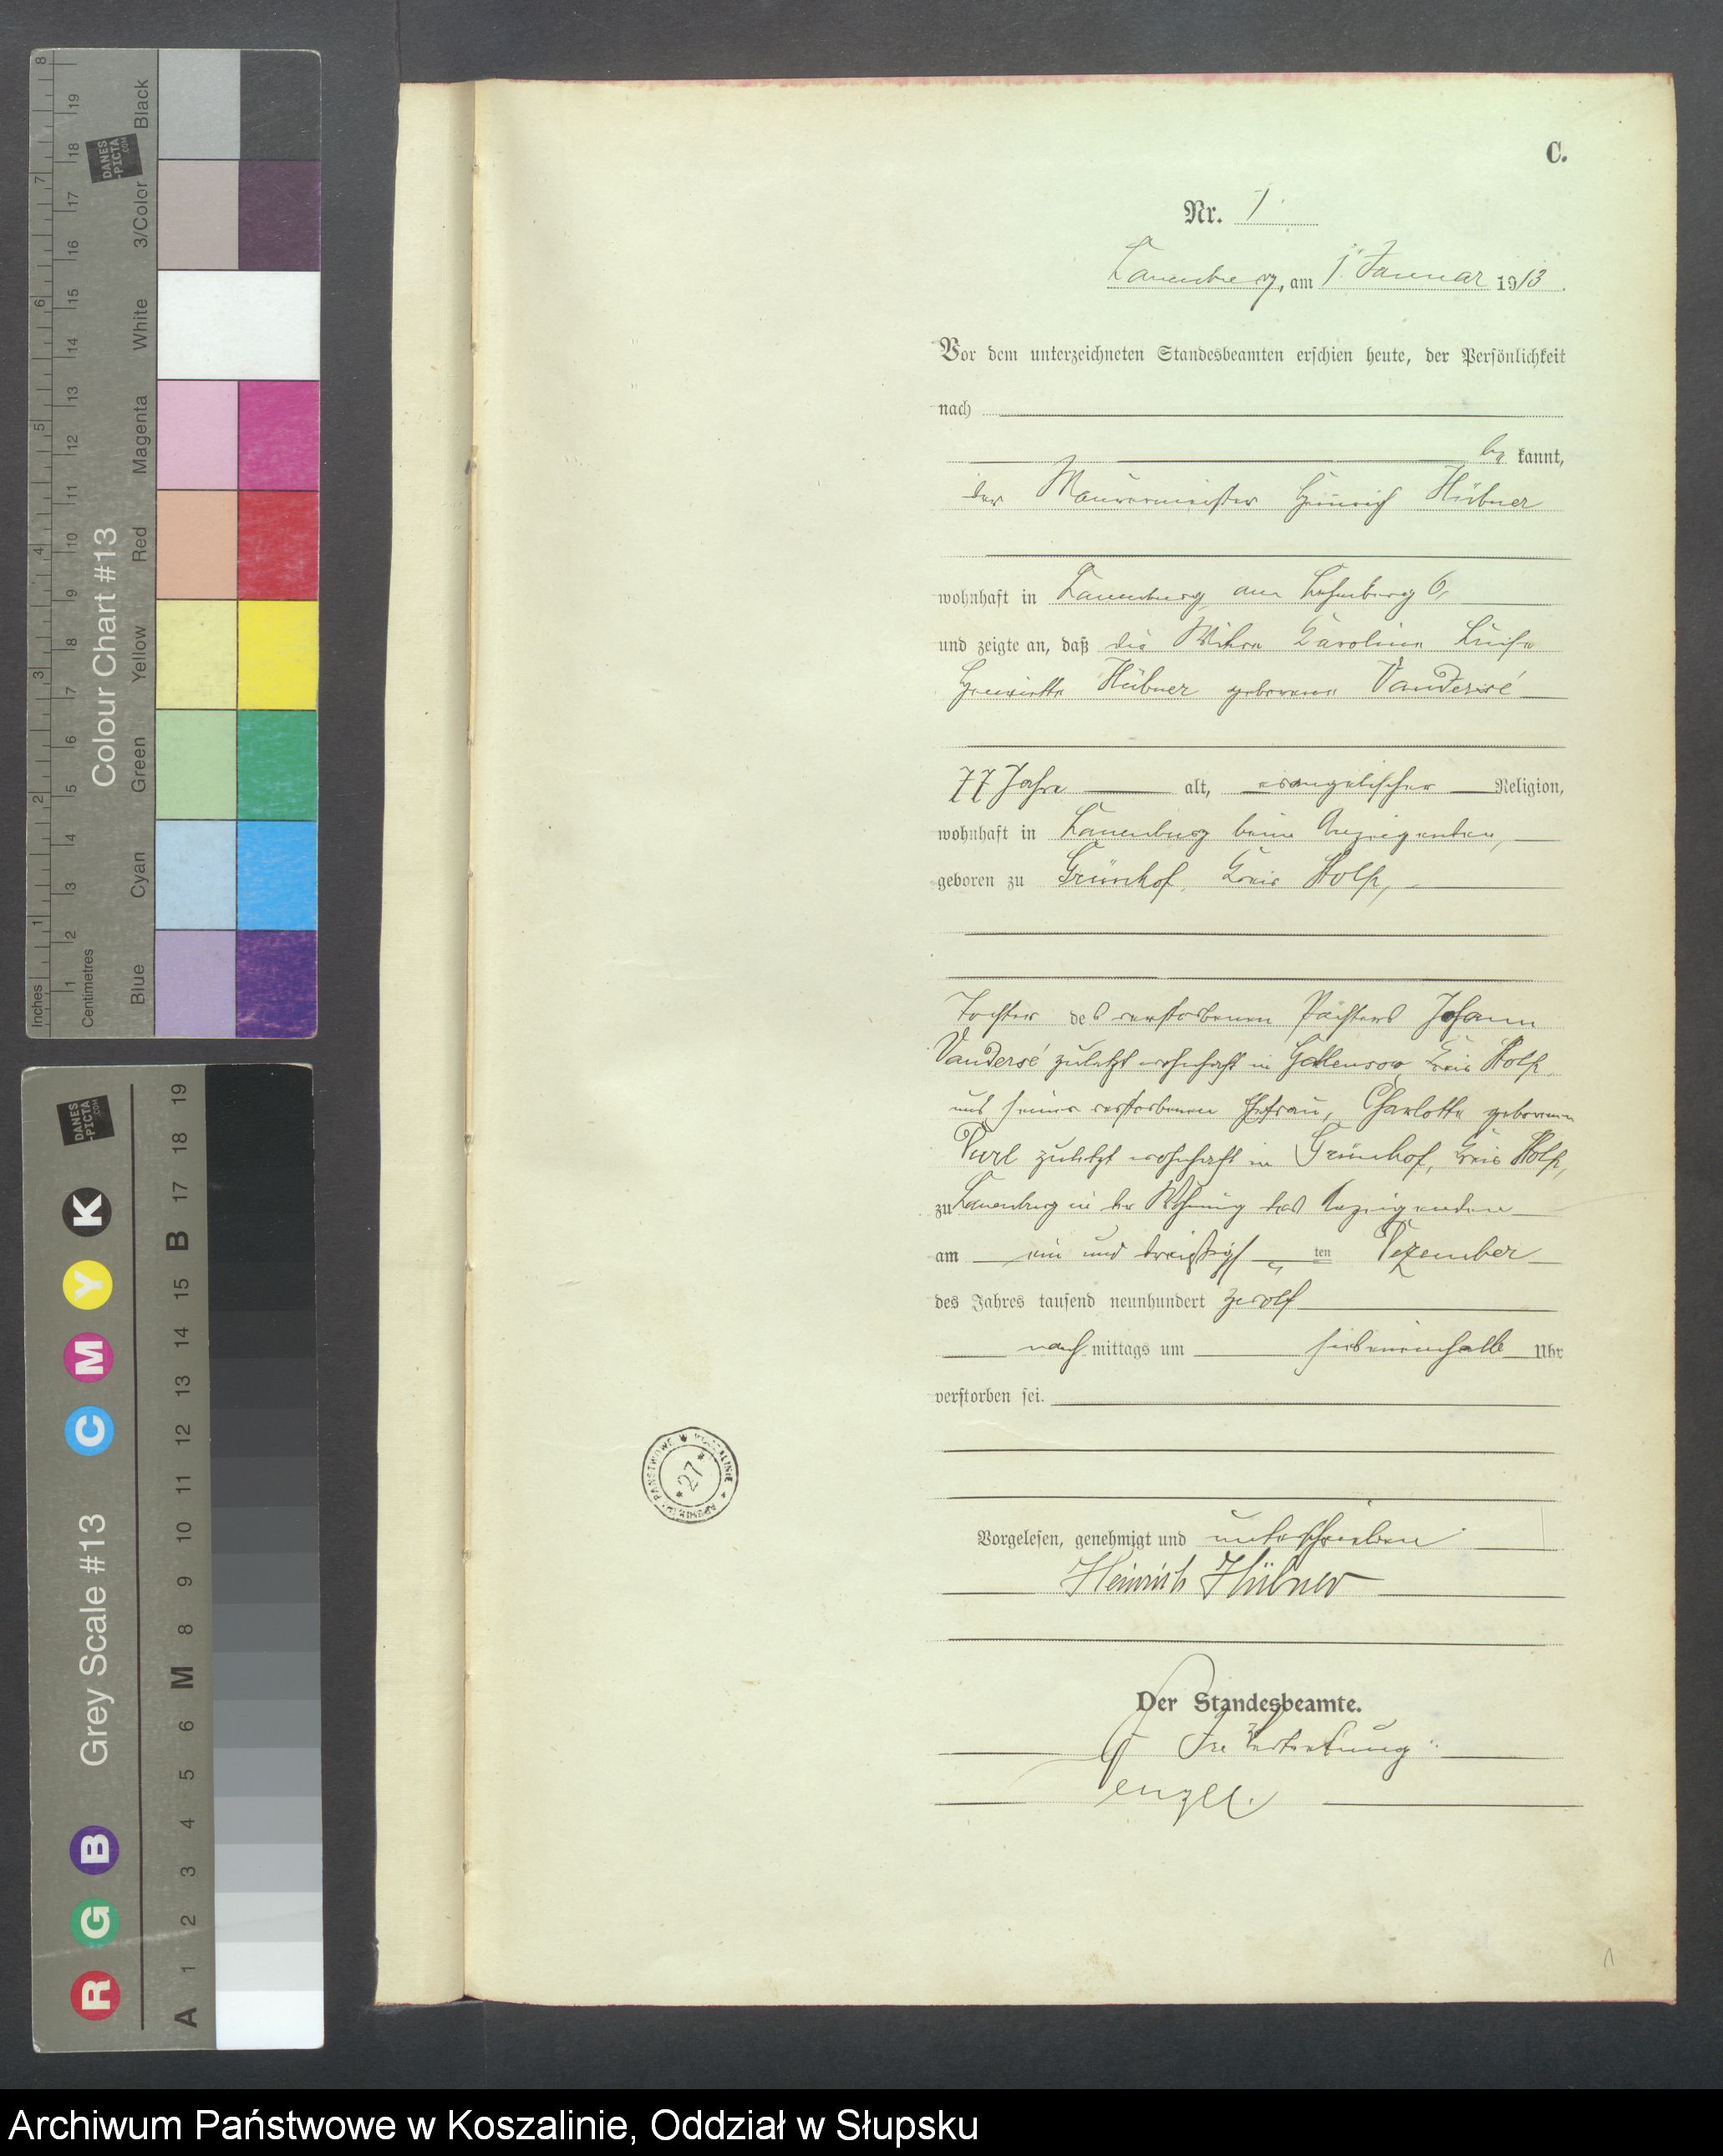 C.
Nr. 1
Lauenburg, am 1. Januar 1913.
Vor dem unterzeichneten Standesbeamten erschien heute, der Persönlichkeit
nach
be kannt,
der Maurermeister Heinrich Hübner
wohnhaft in Lauenburg, am 6,
und zeigte an, daß die Witwe Karoline Luise
Henriette Hübner geborene Vandersé
77 Jahre alt, evangelischer Religion,
wohnhaft in Lauenburg beim Anzeigenden,
geboren zu Grünhof, Kreis Stolp,
Tochter des verstorbenen Pächters Johann
Vandersé zuletzt wohnhaft in Kreis Stolp
und seiner verstorbenen Ehefrau, Charlotte geborenen
zuletzt wohnhaft in Grünhof, Kreis Stolp,
zu Lauenburg in der Wohnung des Anzeigenden
am ein und dreißigs ten Dezember
des Jahres tausend neunhundert zwölf
nach mittags um siebeneinhalb Uhr
verstorben sei.
Vorgelesen, genehmigt und unterschrieben
Heinrich Hübner
Der Standesbeamte.
In Vertretung:
27
Inches
Centimetres
Colour Chart #13
Blue
Cyan
Green
Yellow
Red
Magenta
White
3/Color
Black
DANES
-PICTA
.COM
1 2 3 4 5 6 7 8
1 2 3 4 5 6 7 8 9 10 11 12 13 14 15 16 17 18 19
Grey Scale #13
R G B C M Y K
DANES
-PICTA
.COM
A 1 2 3 4 5 6 M 8 9 10 11 12 13 14 15 B 17 18 19
Archiwum Państwowe w Koszalinie, Oddział w Słupsku